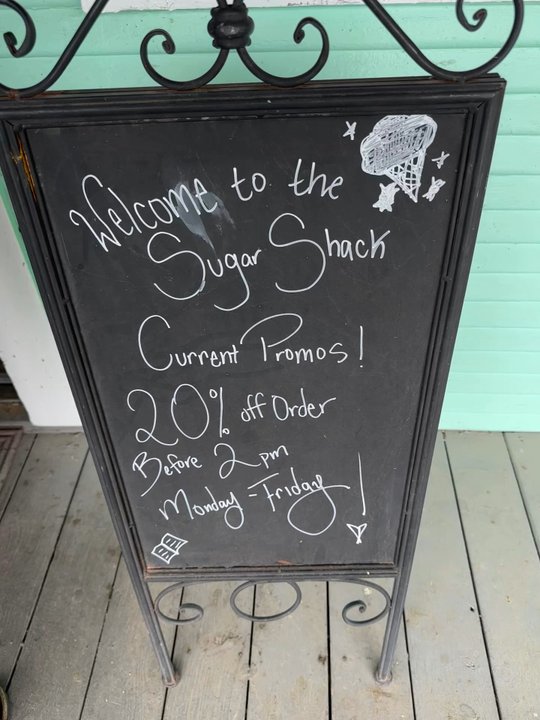 Welcome to the
Sugar Shack
Current Promos!
20% off Order
Before 2pm
Monday-Friday!